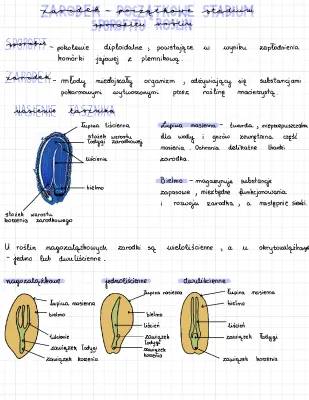 Zarodek - początkowe stadium
sporofitu roślin
SPOROFIT - pokolenie diploidalne, powstające w wyniku zapłodnienia
komórki jajowej z plemnikową.
ZARODEK - młody niedojrzały organizm, odżywiający się substancjami
pokarmowymi wytworzonymi przez roślinę macierzystą.
NASIENIE TASZNIKA
łupina liścienna
stożek wzrostu
łodygi zarodkowej
liścienie
bielmo
stożek wzrostu
korzenia zarodkowego
Łupina nasienna - twarda, nieprzepuszczalna
dla wody i gazów zewnętrzna część
nasienia. Ochrania delikatne tkanki
zarodka.
Bielmo - magazynuje substancje
zapasowe, niezbędne funkcjonowania
i rozwoju zarodka, a następnie siewki.
U roślin nagozalążkowych zarodki są wieloliścienne, a u okrytozalążkowych
- jedno lub dwuliścienne.
nagozalążkowe
jednoliścienne
dwuliścienne
łupina nasienna
bielmo
liścienie
zawiązek łodygi
zawiązek korzenia
łupina nasienna
bielmo
liścień
zawiązek
łodygi
zawiązek
korzenia
łupina nasienna
bielmo
liścień
zawiązek łodygi
zawiązek korzenia